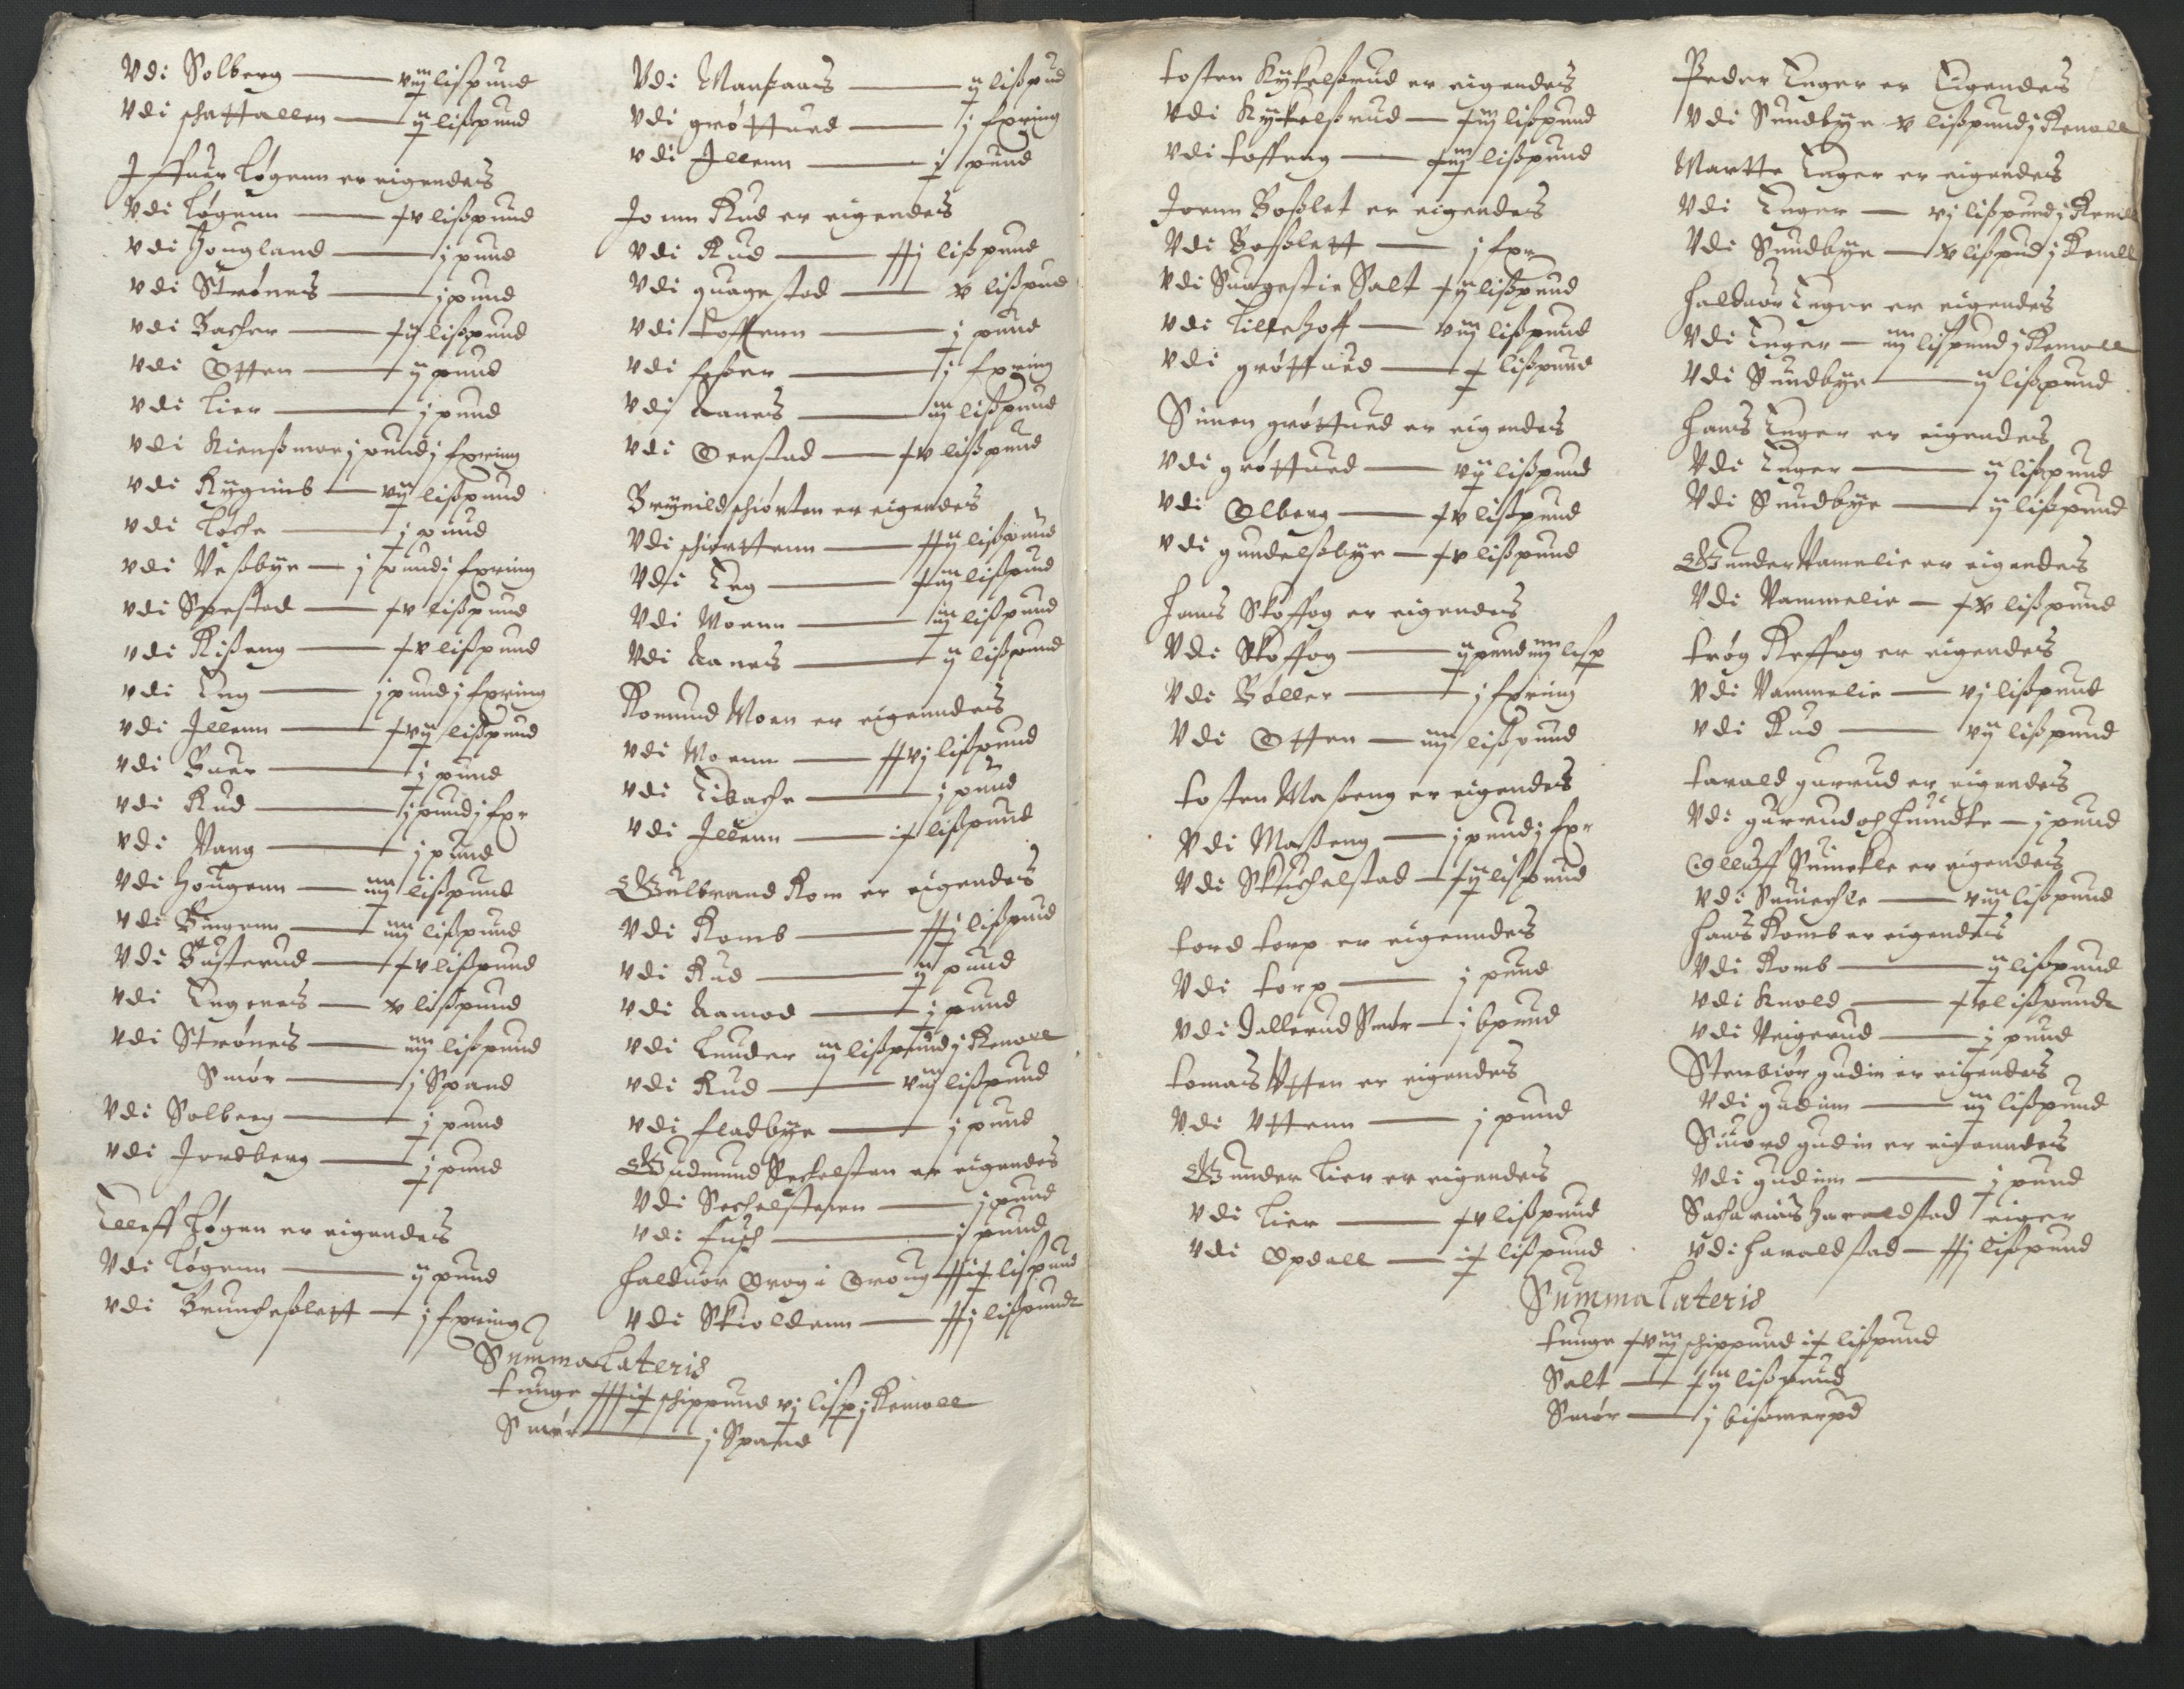 Vdi Solberg — viij lißpund
Vdi schattallen — ij lißpund
Iffuer Løgenn er eigendes
Vdi Løgenn — xv lißpund
vdi Hougland — j pund
vdi Strønes — j pund
vdi Backer — xij lißpund
vdi Otten — ij pund
vdi Lier — j pund
vdi j pund j fxring
vdi — vij lißpund
vdi Løche — j pund
vdi Veßbÿe — j pund j fxring
vdi — xv lißpund
vdi Rißeng — xv lißpund
vdi Eng — j pund j fxring
vdi Illenn — xvij lißpund
vdi Buer — j pund
vdi Rud — j pund j fxr
vdi Vang — j pund
vdi Hougenn — iiij lißpund
vdi Bingenn — iiij lißpund
vdi Busterud — xv lißpund
vdi Engenes — x lißpund
vdi Strønes — iiij lißpund
Smør — j Spand
Vdi Solberg — j pund
vdi Jordberg — j pund
Elleff Løgen er eigendes
Vdi Løgenn — ij pund
vdi Bruncheslett — j fxring
Vdi — ij lißpund
vdi grøttued — j fxring
vdi Illenn — j pund
Jonn Rud er eigendes
vdi Rud — xxj lißpund
Vdi guagestad — x lißpund
vdi toffenn — j pund
vdi foßer — j fxring
vdi Aanes — iij lißpund
vdi Orestad — xv lißpund
Brÿnild schiørten er eigendes
Vdi schiørttenn — xxij lißpund
Vdi Eng — xiij lißpund
Vdi Moenn — iij lißpund
Vdi Aanes — ij lißpund
Romund Moen er eigenndes
vdi Moenn — xxvj lißpund
vdi Libache — j pund
vdi Illenn — ix lißpund
Gulbrand Rom er eigendes
vdi Romb — xxij lißpund
vdi Rud — ij pund
vdi Aamod — j pund
vdi Lunder iij lißpund j Remoll
vdi Rud — viij lißpund
vdi fladbÿe — j pund
Gudmund Sechelsten er eigendes
Vdi Sechelstenn — j pund
vdi fusch — j pund
Halduor Drog i Droug xxix lißpund
vdi Skioldenn — xxj lißpund
Summa Lateris
tunge xxxix schippund vj lisp j Remoll
Smør — j Spand
tosten Kÿkelsrud er eigendes
vdi Kÿkelsrud — xiij lißpund
vdi toffeng — xiij lißpund
Joenn Boßlet er eigendes
Vdi Boßlett — j fxr
vdi Salt xij lißpund
vdi Lillehoff — viij lißpund
vdi grøttued — x lißpund
Simen grøttued er eigendes
vdi grøttued — vij lißpund
vdi Olberg — xv lißpund
vdi gundelßbÿe — xv lißpund
Hans Skoffog er eigendes
Vdi Skoffog — ij pund iiij lisp
Vdi Bøller — j fxring
Vdi Otten — iiij lißpund
tosten Maßeng er eigendes
Vdi Maßeng — j pund j fxr
Vdi Skuchelstad — xij lißpund
tord torp er eigenndes
Vdi torp — j pund
vdi Dallerud Smør — j bpund
tomas Vtten er eigendes
Vdi Vttenn — j pund
Gunder Lier er eigendes
vdi Lier — xv lißpund
vdi Opdall — ix lißpund
Peder Enger er Eigendes
Vdi Sundbÿe x lißpund j Remoll
Martte Enger er eigendes
Vdi Enger — vj lißpund j Remoll
Vdi Sundbÿe — x lißpund j Remoll
Halduor Enger er eigendes
Vdi Enger — iiij lißpund j Remoll
Vdi Sundbÿe — ij lißpund
Hans Enger er eigendes
Vdi Enger — ij lißpund
Vdi Sundbÿe — ij lißpund
Gunder Vamelie er eigendes
Vdi Vammelie — xx lißpund
trøg Reffog er eigendes
Vdi Vammelie — vj lißpund
vdi Rud — vij lißpund
tarald gurrud er eigendes
Vdi gurrud och hundte — j pund
Olluff Suinekle er eigendes
vdi Suinechle — viij lißpund
Hans Romb er eigendes
Vdi Romb — ij lißpund
vdi Knold — xv lißpund
vdi Veigerud — j pund
Stenbiør gudim er eigendes
vdi gudim — iij lißpund
Siuord gudim er eigenndes
Vdi gudim — j pund
Sacharias Haraldstad eiger
vdi Haraldstad — xxj lißpund
Summa Lateris
tunge xviij schippund ix lißpund
Salt — xij lißpund
Smør — j bißmerpd